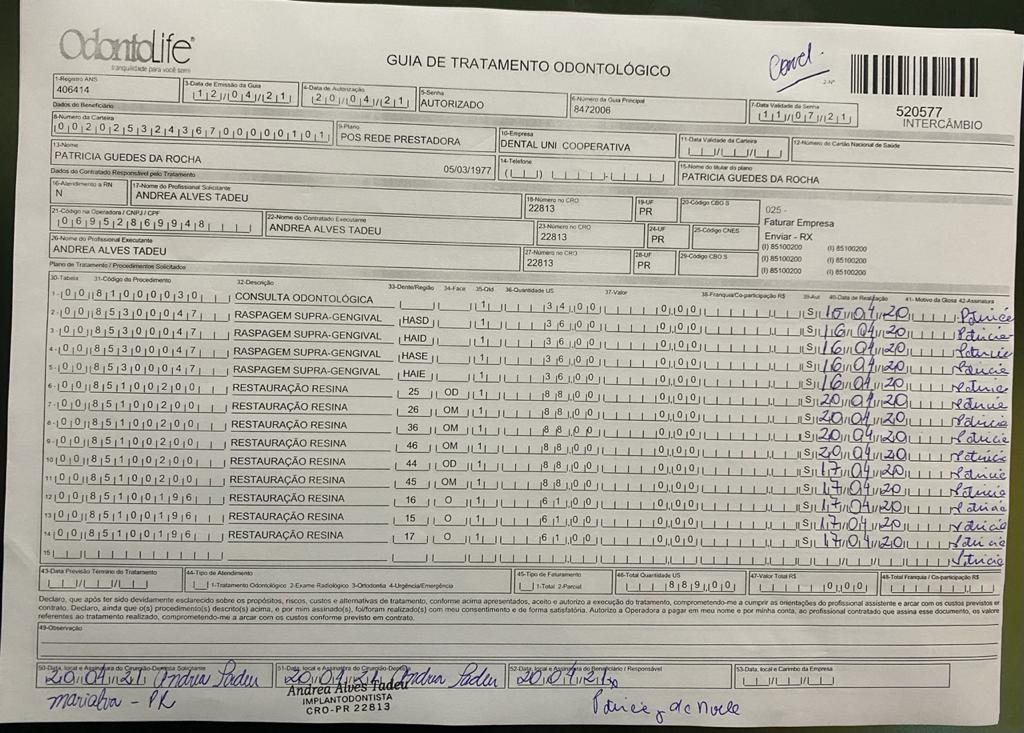 OdontoLife
tranquilidade para você sorrir
GUIA DE TRATAMENTO ODONTOLÓGICO
2-Nº
520577
INTERCÂMBIO
1-Registro ANS 3-Data de Emissão da Guia 4-Data de Autorização 5-Senha 6-Número da Guia Principal 7-Data Validade da Senha
406414 12/04/21 20/04/21 AUTORIZADO 8472006 11/07/21
Dados do Beneficiário
8-Número da Carteira 9-Plano 10-Empresa 11-Data Validade da Carteira 12-Número do Cartão Nacional de Saúde
00202532436700000101 POS REDE PRESTADORA DENTAL UNI COOPERATIVA
13-Nome 14-Telefone 15-Nome do titular do plano
PATRICIA GUEDES DA ROCHA 05/03/1977 PATRICIA GUEDES DA ROCHA
Dados do Contratado Responsável pelo Tratamento
16-Atendimento a RN 17-Nome do Profissional Solicitante 18-Número no CRO 19-UF 20-Código CBO S
N ANDREA ALVES TADEU 22813 PR
025 -
Faturar Empresa
Enviar - RX
(I) 85100200 (I) 85100200
(I) 85100200 (I) 85100200
(I) 85100200 (I) 85100200
21-Código na Operadora / CNPJ / CPF 22-Nome do Contratado Executante 23-Número no CRO 24-UF 25-Código CNES
06952869948 ANDREA ALVES TADEU 22813 PR
26-Nome do Profissional Executante 27-Número no CRO 28-UF 29-Código CBO S
ANDREA ALVES TADEU 22813 PR
Plano de Tratamento / Procedimentos Solicitados
30-Tabela 31-Código do Procedimento 32-Descrição 33-Dente/Região 34-Face 35-Qtd 36-Quantidade US 37-Valor 38-Franquia/Co-participação R$ 39-Aut 40-Data de Realização 41-Motivo da Glosa 42-Assinatura
1- 00 81000030 CONSULTA ODONTOLÓGICA 1 34,00 0,00 S 16/04/20 Patricia
2- 00 85300047 RASPAGEM SUPRA-GENGIVAL HASD 1 36,00 0,00 S 16/04/20 Patricia
3- 00 85300047 RASPAGEM SUPRA-GENGIVAL HAID 1 36,00 0,00 S 16/04/20 Patricia
4- 00 85300047 RASPAGEM SUPRA-GENGIVAL HASE 1 36,00 0,00 S 16/04/20 Patricia
5- 00 85300047 RASPAGEM SUPRA-GENGIVAL HAIE 1 36,00 0,00 S 16/04/20 Patricia
6- 00 85100200 RESTAURAÇÃO RESINA 25 OD 1 88,00 0,00 S 20/04/20 Patricia
7- 00 85100200 RESTAURAÇÃO RESINA 26 OM 1 88,00 0,00 S 20/04/20 Patricia
8- 00 85100200 RESTAURAÇÃO RESINA 36 OM 1 88,00 0,00 S 20/04/20 Patricia
9- 00 85100200 RESTAURAÇÃO RESINA 46 OM 1 88,00 0,00 S 20/04/20 Patricia
10- 00 85100200 RESTAURAÇÃO RESINA 44 OD 1 88,00 0,00 S 17/04/20 Patricia
11- 00 85100200 RESTAURAÇÃO RESINA 45 OM 1 88,00 0,00 S 17/04/20 Patricia
12- 00 85100196 RESTAURAÇÃO RESINA 16 O 1 61,00 0,00 S 17/04/20 Patricia
13- 00 85100196 RESTAURAÇÃO RESINA 15 O 1 61,00 0,00 S 17/04/20 Patricia
14- 00 85100196 RESTAURAÇÃO RESINA 17 O 1 61,00 0,00 S 17/04/20 Patricia
15-
43-Data Previsão Término do Tratamento 44-Tipo de Atendimento 45-Tipo de Faturamento 46-Total Quantidade US 47-Valor Total R$ 48-Total Franquia / Co-participação R$
1-Tratamento Odontológico 2-Exame Radiológico 3-Ortodontia 4-Urgência/Emergência 1-Total 2-Parcial 889,00 0,00
Declaro, que após ter sido devidamente esclarecido sobre os propósitos, riscos, custos e alternativas de tratamento, conforme acima apresentados, aceito e autorizo a execução do tratamento, comprometendo-me a cumprir as orientações do profissional assistente e arcar com os custos previstos em
contrato. Declaro, ainda que o(s) procedimento(s) descrito(s) acima, e por mim assinado(s), foi/foram realizado(s) com meu consentimento e de forma satisfatória. Autorizo a Operadora a pagar em meu nome e por minha conta, ao profissional contratado que assina esse documento, os valores
referentes ao tratamento realizado, comprometendo-me a arcar com os custos conforme previsto em contrato.
49-Observação
50-Data, local e Assinatura do Cirurgião-Dentista Solicitante 51-Data, local e Assinatura do Cirurgião-Dentista 52-Data, local e Assinatura do Beneficiário / Responsável 53-Data, local e Carimbo da Empresa
20/04/21 Andrea Tadeu 20/04/21 Andrea Tadeu 20/04/21
Marialva - PR
Andrea Alves Tadeu
IMPLANTODONTISTA
CRO-PR 22813
Patricia g da Rocha